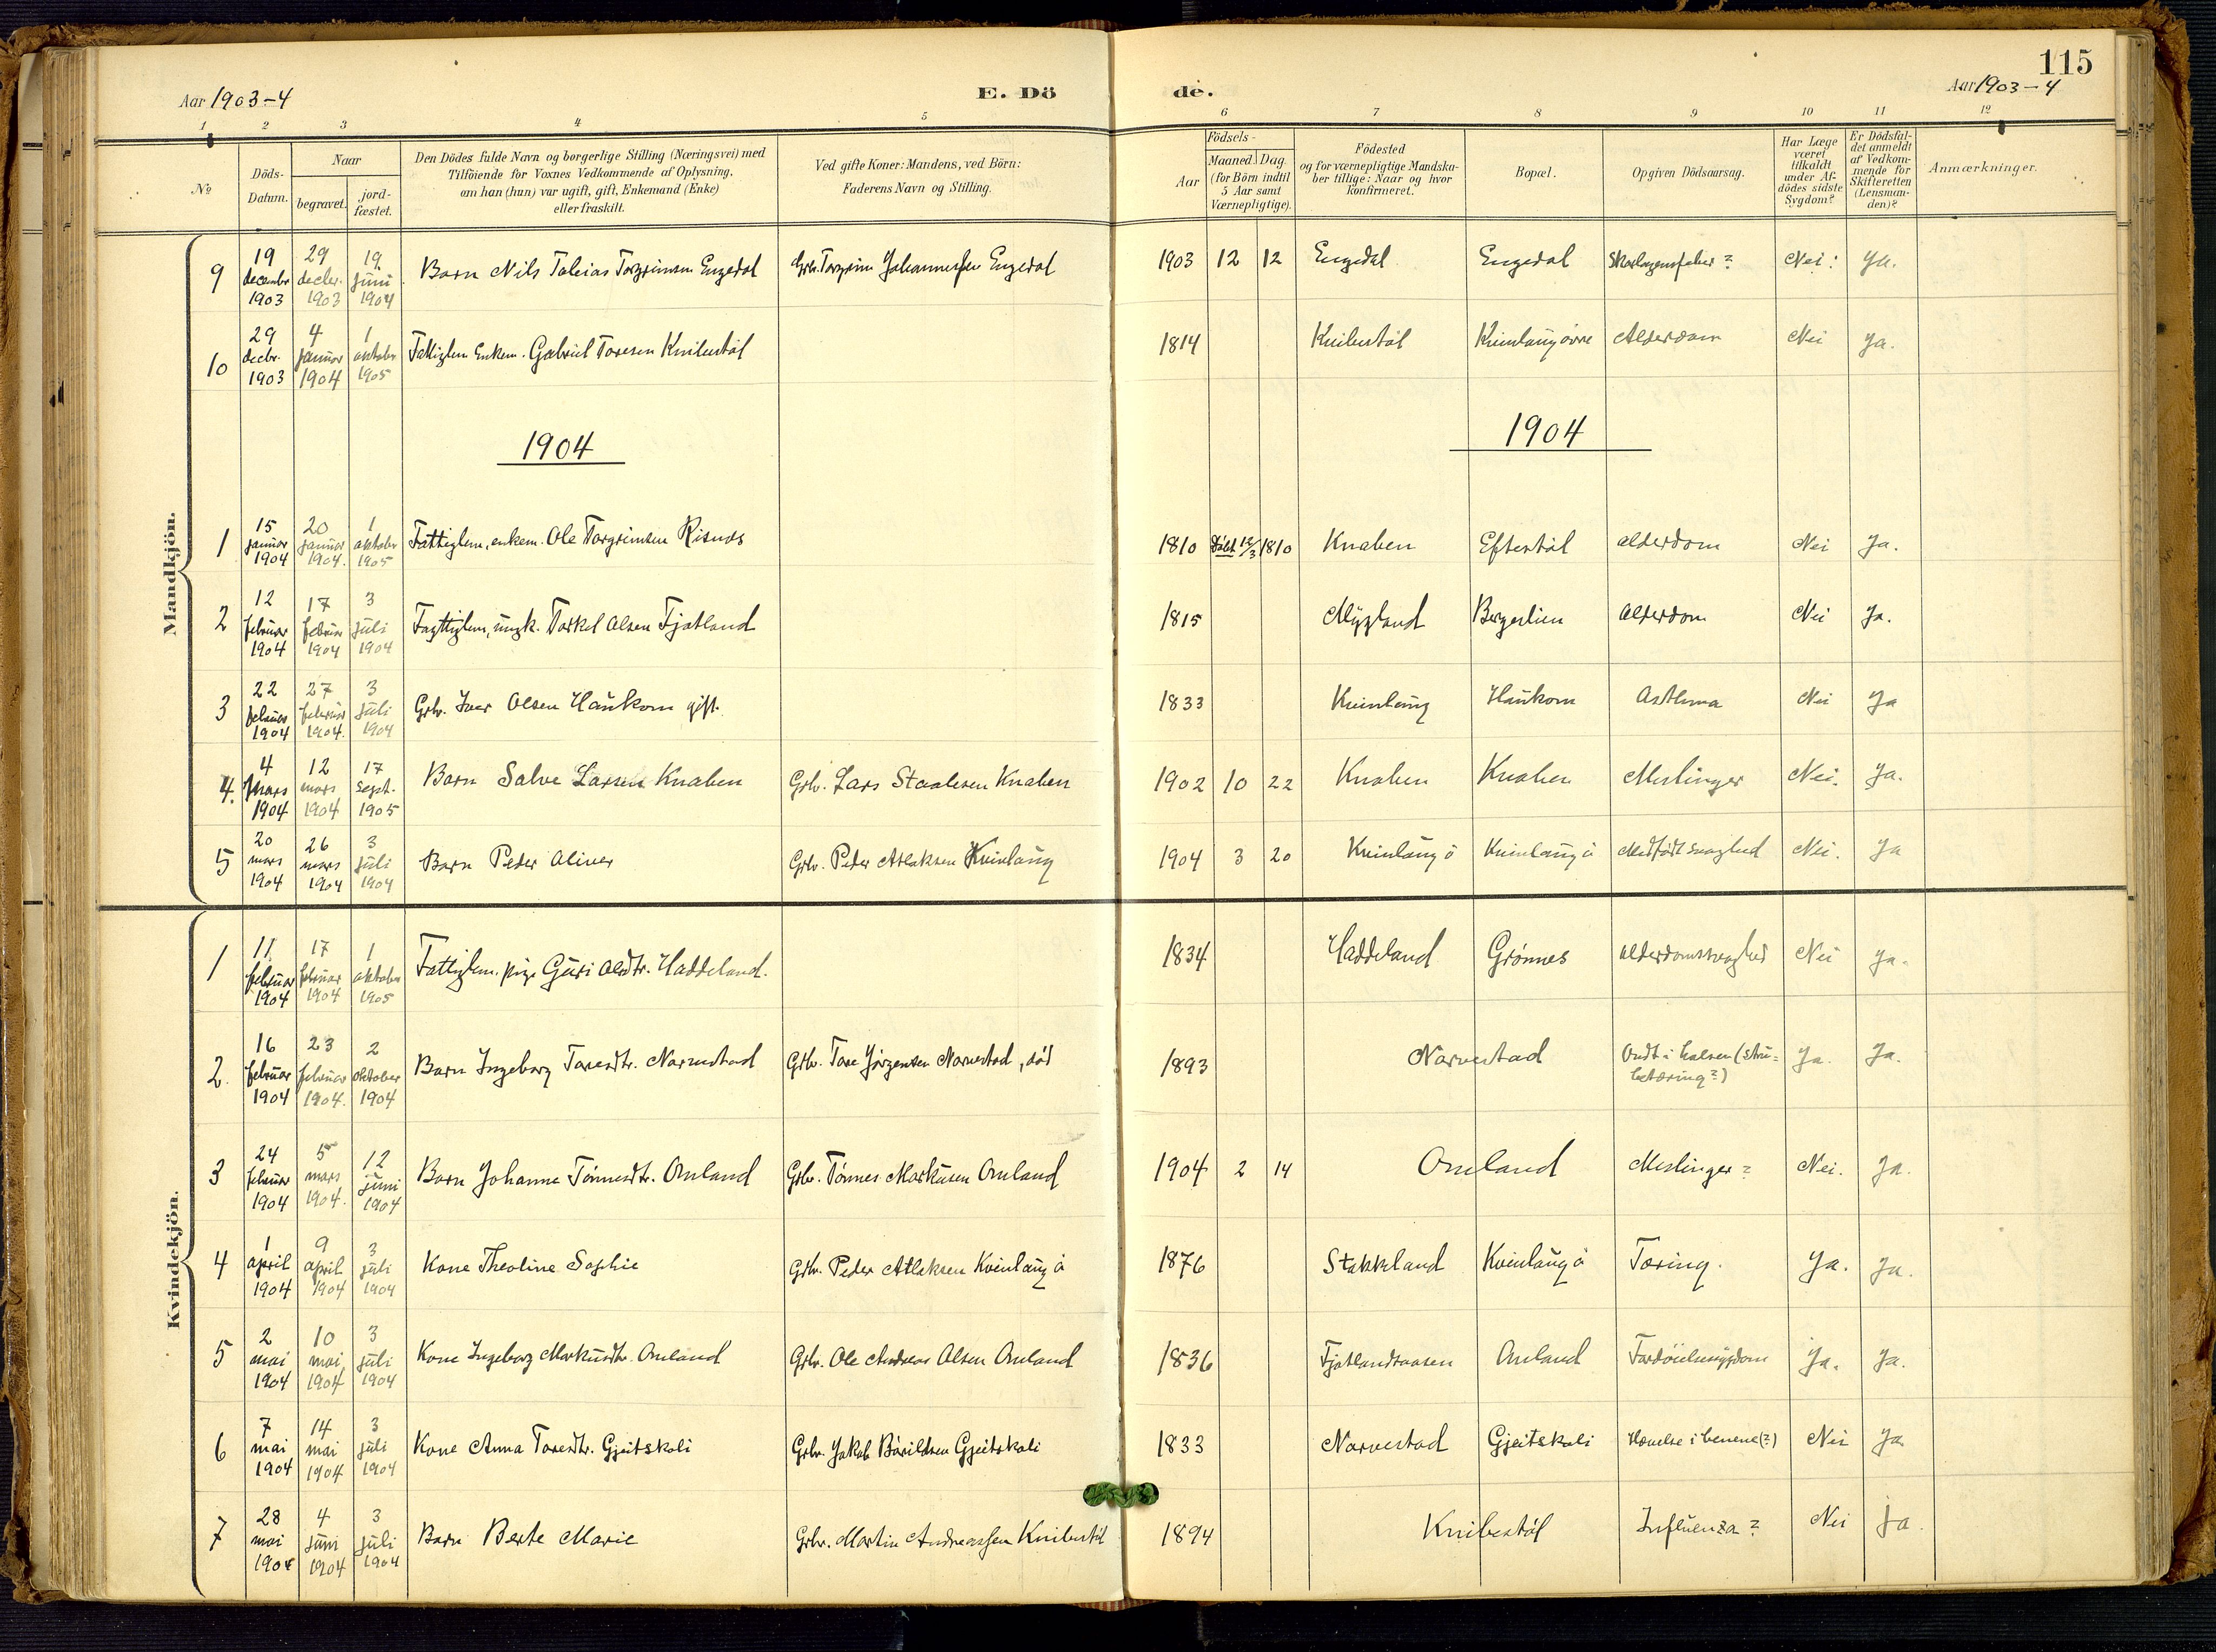 115
Aar 1903-4
E. Dö
de.
Aar 1903-4
1 2 3 4 5 6 7 8 9 10 11 12
No
Döds-
Datum.
Naar
begravet.
jord-
fæstet.
Den Dödes fulde Navn og borgerlige Stilling (Næringsvei) med
Tilföiende for Voxnes Vedkommende af Oplysning,
om han (hun) var ugift, gift, Enkemand (Enke)
eller fraskilt.
Ved gifte Koner: Mandens, ved Börn:
Faderens Navn og Stilling.
Aar
Födsels-
Maaned. Dag.
(for Börn indtil
5 Aar samt
Værnepligtige).
Födested
og for værnepligtige Mandska-
ber tillige: Naar og hvor
konfirmeret.
Bopæl.
Opgiven Dödsaarsag.
Har Læge
været
tilkaldt
under Af-
dödes sidste
Sygdom?
Er Dödsfal-
det anmeldt
af Vedkom-
mende for
Skifteretten
(Lensman-
den)?
Anmærkninger.
Mandkjön.
9 19 decembr 1903 29 decbr. 1903 19 juni 1904 Barn Nils Tobias Torgrimsen Engedal Grbr. Torgrim Johannessen Engedal 1903 12 12 Engedal Engedal Skarlagensfeber? Nei: Ja.
10 29 decbr. 1903 4 januar 1904 1 oktober 1905 Fattiglem Enkem. Gabriel Toresen Knibestöl 1814 Knibestöl Kvinlaug övre Alderdom Nei Ja.
1904
1904
1 15 januar 1904 20 januar 1904. 1 oktober 1905 Fattiglem, enkem. Ole Torgrimsen Risnes 1810 Döbt 12/3 1810 Knaben Eftestöl alderdom Nei Ja.
2 12 februar 1904 17 februar 1904 3 juli 1904 Fattiglem, ungk. Torkel Olsen Fjotland 1815 Mygland Bergelien alderdom Nei Ja.
3 22 februar 1904 27 februar 1904. 3 juli 1904 Grbr. Iver Olsen Haukom gift. 1833 Kvinlaug Haukom Asthma Nei Ja
4. 4 mars 1904 12 mars 1904 17 sept. 1905 Barn Salve Larsen Knaben Grbr. Lars Staalesen Knaben 1902 10 22 Knaben Knaben Meslinger Nei. Ja.
5 20 mars 1904 26 mars 1904 3 juli 1904 Barn Peder Oliver Grbr. Peder Atlaksen Kvinlaug 1904 3 20 Kvinlaug ö Kvinlaug ö Medfödt svaghed Nei. Ja
Kvindekjön.
1 11 februar 1904 17 februar 1904 1 oktober 1905 Fattiglem. pige Guri Olsdtr. Haddeland. 1834 Haddeland Grönnes alderdomssvaghed Nei Ja.
2. 16 februar 1904 23 februar 1904. 2 oktober 1904 Barn Ingeborg Toresdtr. Narvestad Grbr. Tore Jörgensen Narvestad, död 1893 Narvestad Ondt i halsen (stru-
betæring?) Ja. Ja.
3 24 februar 1904 5 mars 1904. 12 juni 1904 Barn Johanne Tönnesdtr. Omland Grbr. Tönnes Markusen Omland 1904 2 14 Omland Meslinger? Nei. Ja.
4 1 april 1904 9 april 1904 3 juli 1904 Kone Theoline Sophie Grbr. Peder Atlaksen Kvinlaug ö 1876 Stakkland Kvinlaug ö Tæring. Ja. Ja.
5 2 mai 1904 10 mai 1904 3 juli 1904 Kone Ingeborg Markusdtr. Omland Grbr. Ole Andreas Olsen Omland 1836 Fjotlandsaasen Omland Fordöielsessygdom Ja. Ja.
6 7 mai 1904 14 mai 1904 3 juli 1904 Kone Anna Toresdtr. Gjeitskali Grbr. Jakob Bårildsen Gjeitskali 1833 Narvestad Gjeitskali Hævelse i benene(?) Nei Ja
7 28 mai 1904 4 juni 1904 3 juli 1904 Barn Berte Marie Grbr. Martin Andreassen Knibestöl 1894 Knibestöl Influenza? Nei Ja.